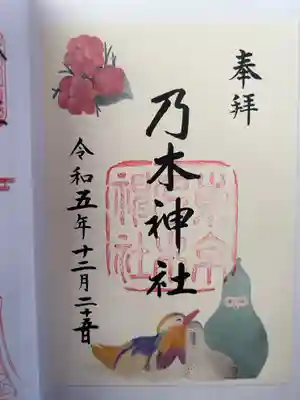 奉拝
乃木神社
令和五年十二月二十五日